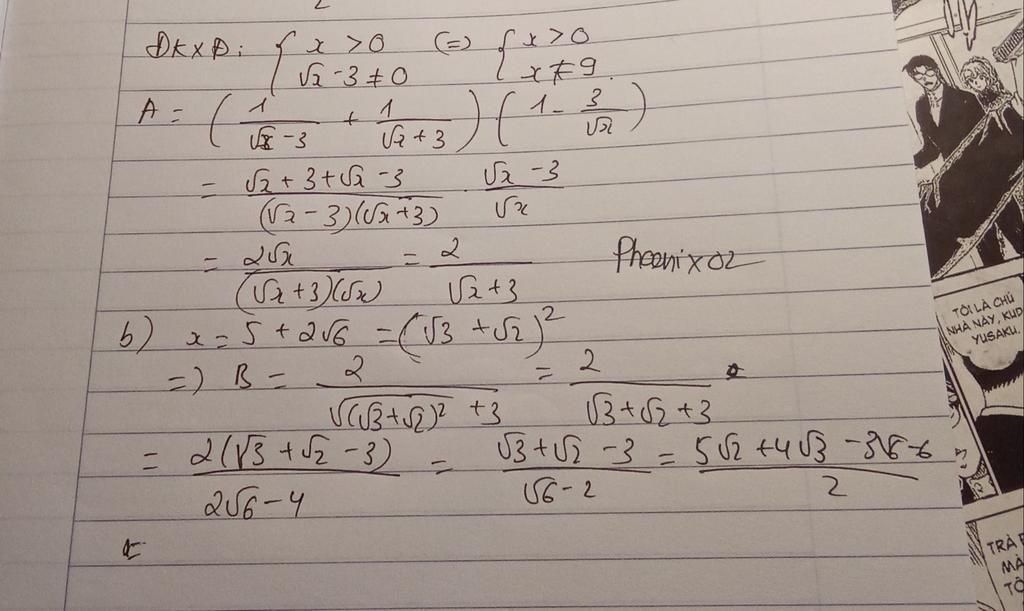 ĐKXĐ: { x > 0 (=) { x > 0
√x - 3 ≠ 0 x ≠ 9.
A = (1/(√x - 3) + 1/(√x + 3)) (1 - 3/√x)
= (√x + 3 + √x - 3)/((√x - 3)(√x + 3)) . (√x - 3)/√x
= 2√x/((√x + 3)(√x)) = 2/(√x + 3) Phoenix02
b) x = 5 + 2√6 = (√3 + √2)²
=) B = 2/(√(√3+√2)² + 3) = 2/(√3 + √2 + 3)
= 2(√3 + √2 - 3)/(2√6 - 4) = (√3 + √2 - 3)/(√6 - 2) = (5√2 + 4√3 - 3√6 - 6)/2
TÔI LÀ CHỦ
NHÀ NÀY, KUDO
YUSAKU.